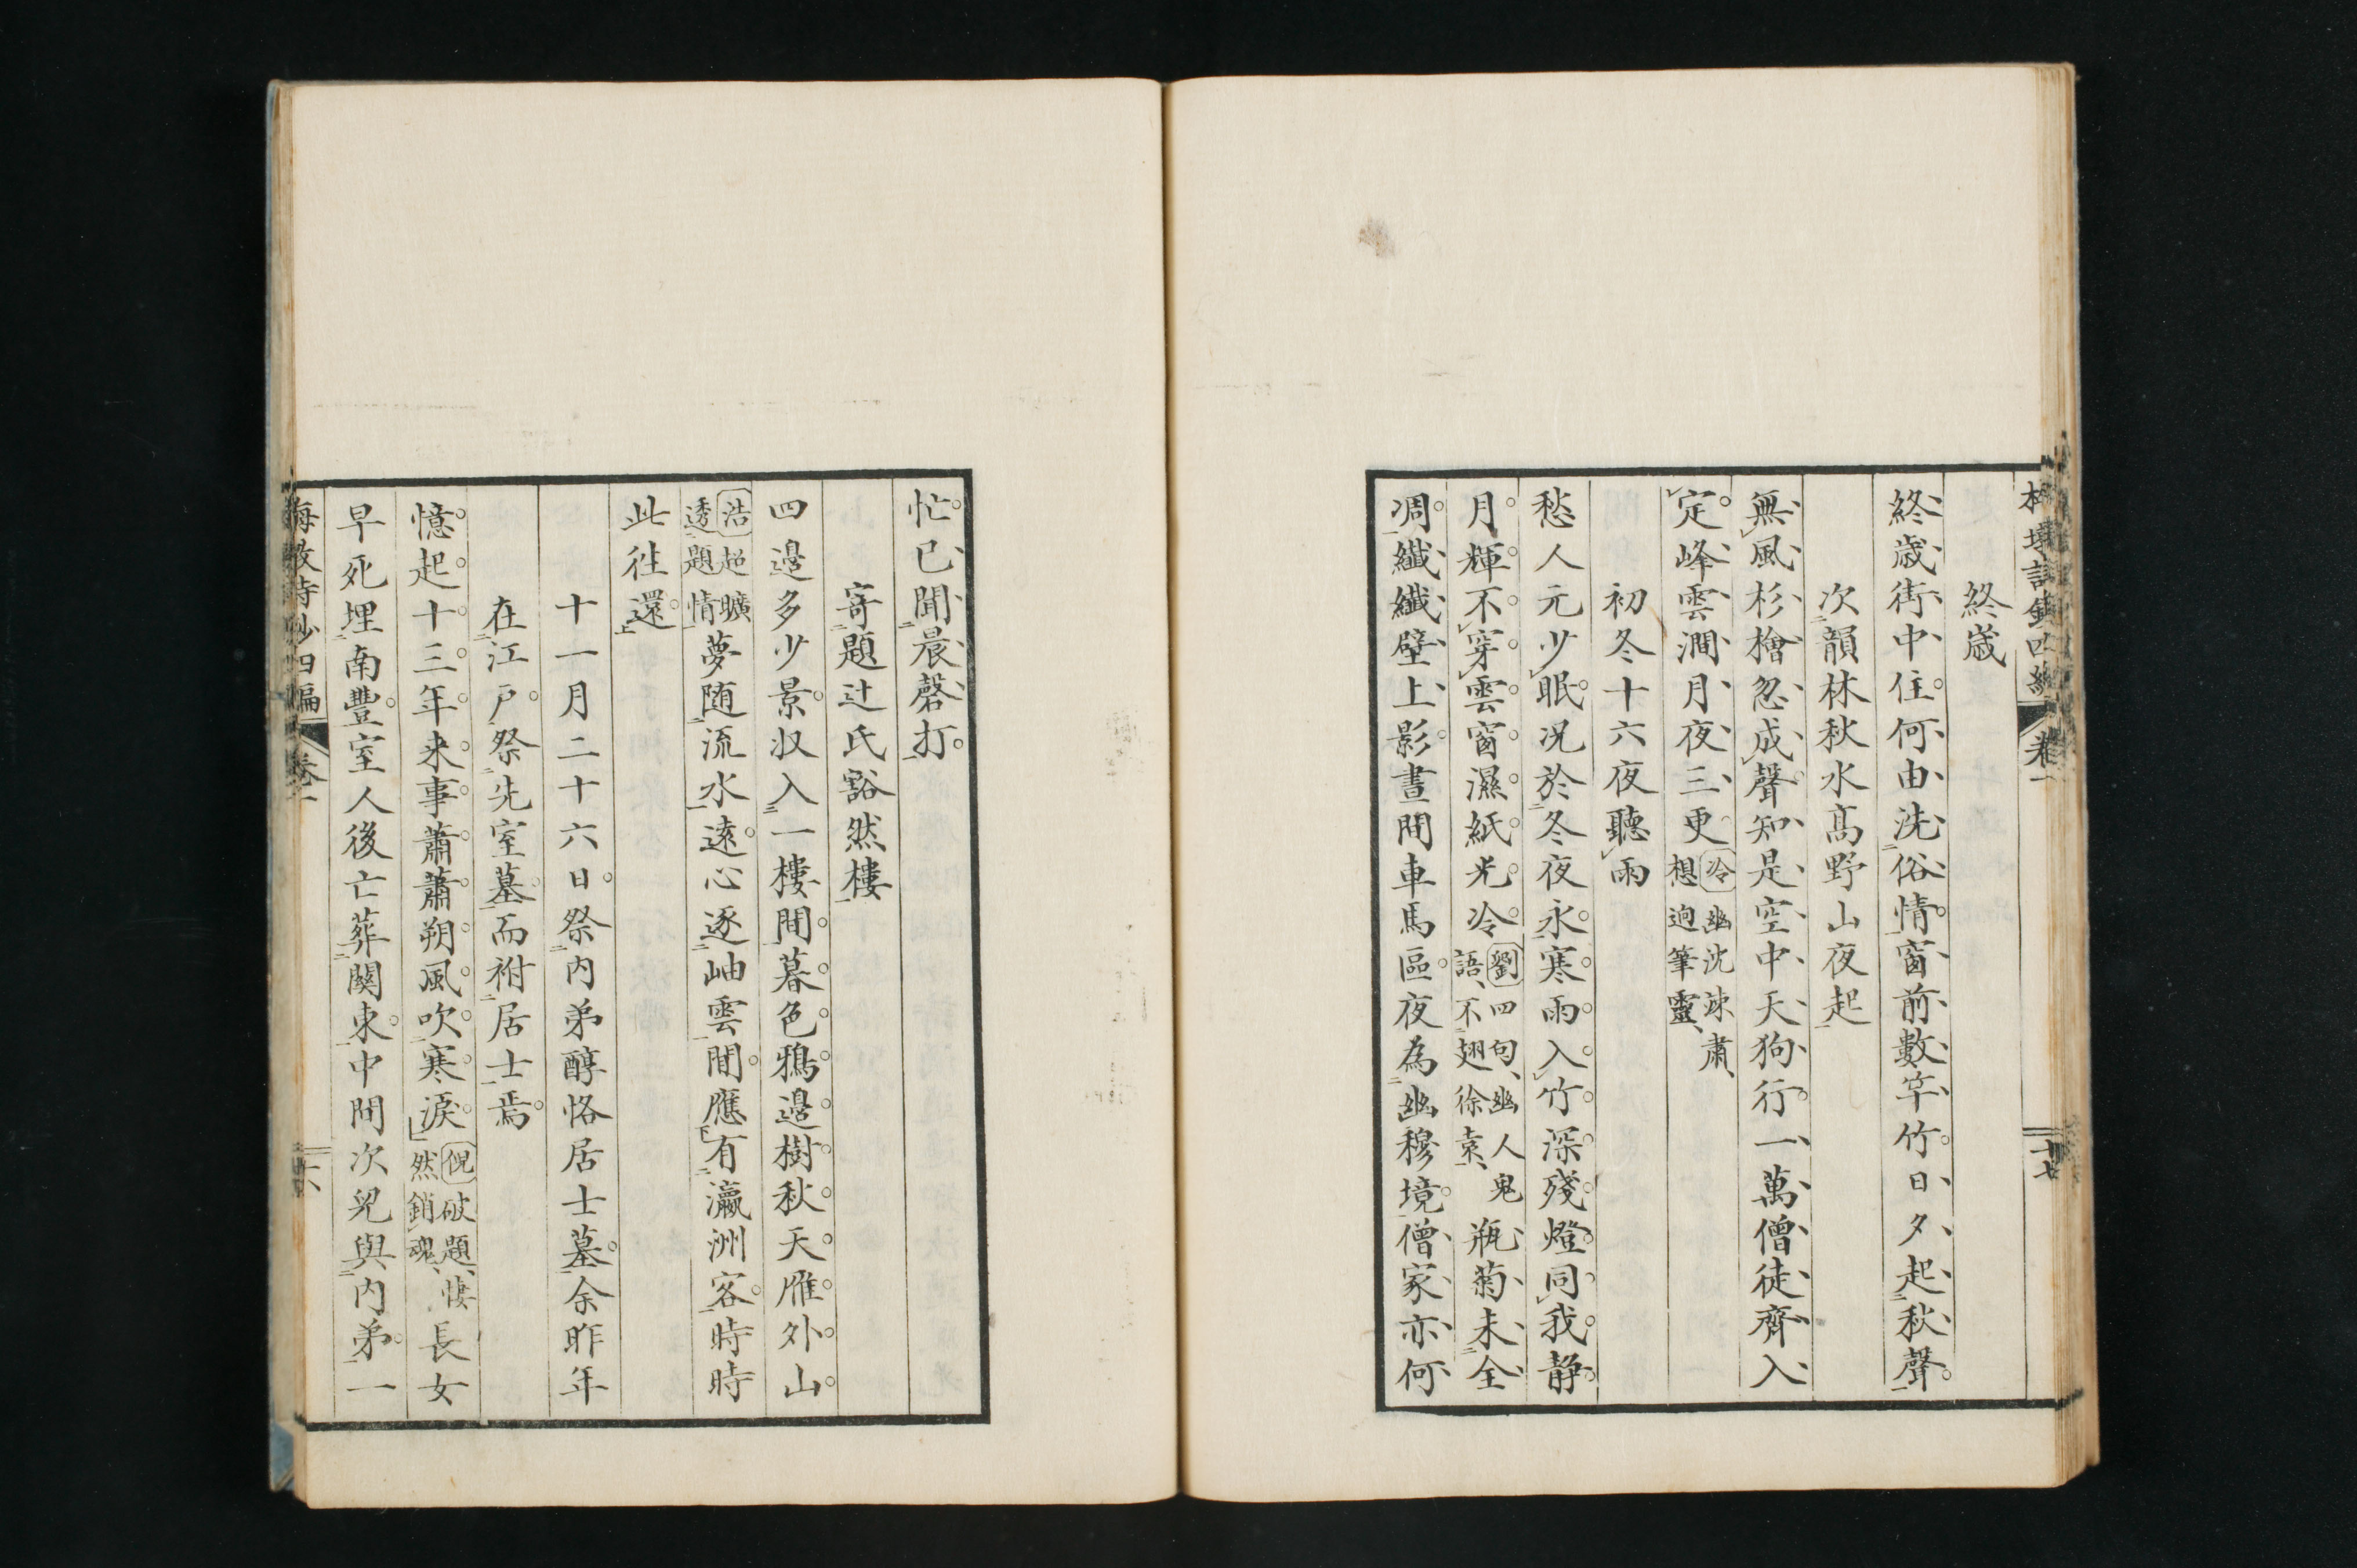 終歳
終歳街中住何由洗俗情窗前數竿竹日夕起秋聲
次韻林秋水高野山夜起
無風杉檜忽成聲知是空中天狗行一萬僧徒齊入
定峰雲澗月夜三更冷幽沈竦肅
想逈筆靈
初冬十六夜聽雨
愁人元少眠況於冬夜永寒雨入竹深殘燈同我静
月輝不穿雲窗濕紙光冷劉四句幽人鬼
語不翅徐袁瓶菊未全
凋纖纖壁上影晝間車馬區夜為幽穆境僧家亦何
卷一
十七
忙已聞晨磬打
寄題辻氏豁然樓
四邉多少景収入一樓間暮色鴉邉樹秋天雁外山
浩超曠
透題情夢随流水遠心逐岫雲間應有瀛洲客時時
此徃還
十一月二十六日祭内弟醇恪居士墓余昨年
在江戸祭先室墓而祔居士焉
憶起十三年来事蕭蕭朔風吹寒淚倪破題悽
然銷魂長女
早死埋南豐室人後亡葬關東中間次兒與内弟一
詩鈔四編
卷一